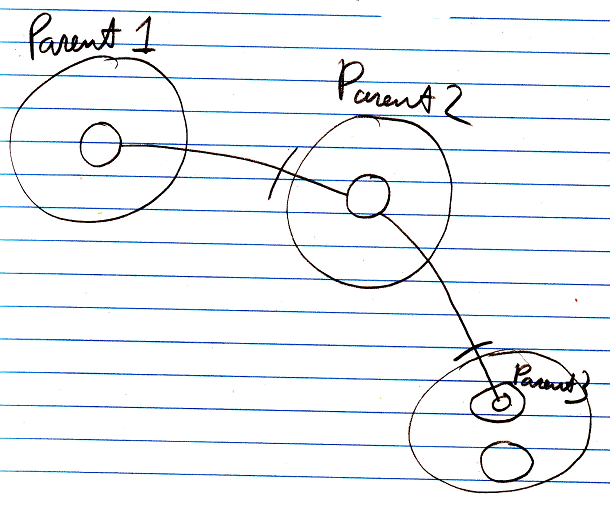 Parent 1
Parent 2
Parent 3